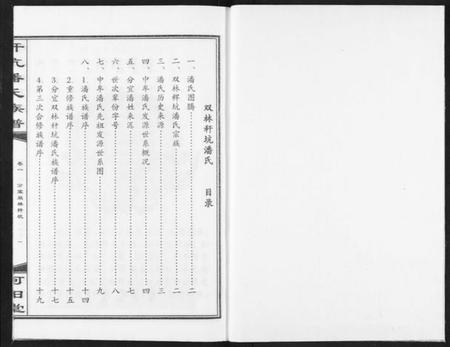 双林秆坑潘氏 目录
一、潘氏图腾……二
二、双林秆坑潘氏宗族……二
三、潘氏历史来源……三
四、中牟潘氏发源世系概况……四
五、分宜潘姓来派……七
六、世次辈份字号……八
七、中牟潘氏先祖发源世系图……九
八、潘氏族谱序
1.潘氏族谱序……十四
2.重修族谱序……十五
3.分宜双林秆坑潘氏族谱序……十七
4.第三次合修族谱序……十九
秆坑潘氏族谱
卷一
分宜双林秆坑
河阳堂